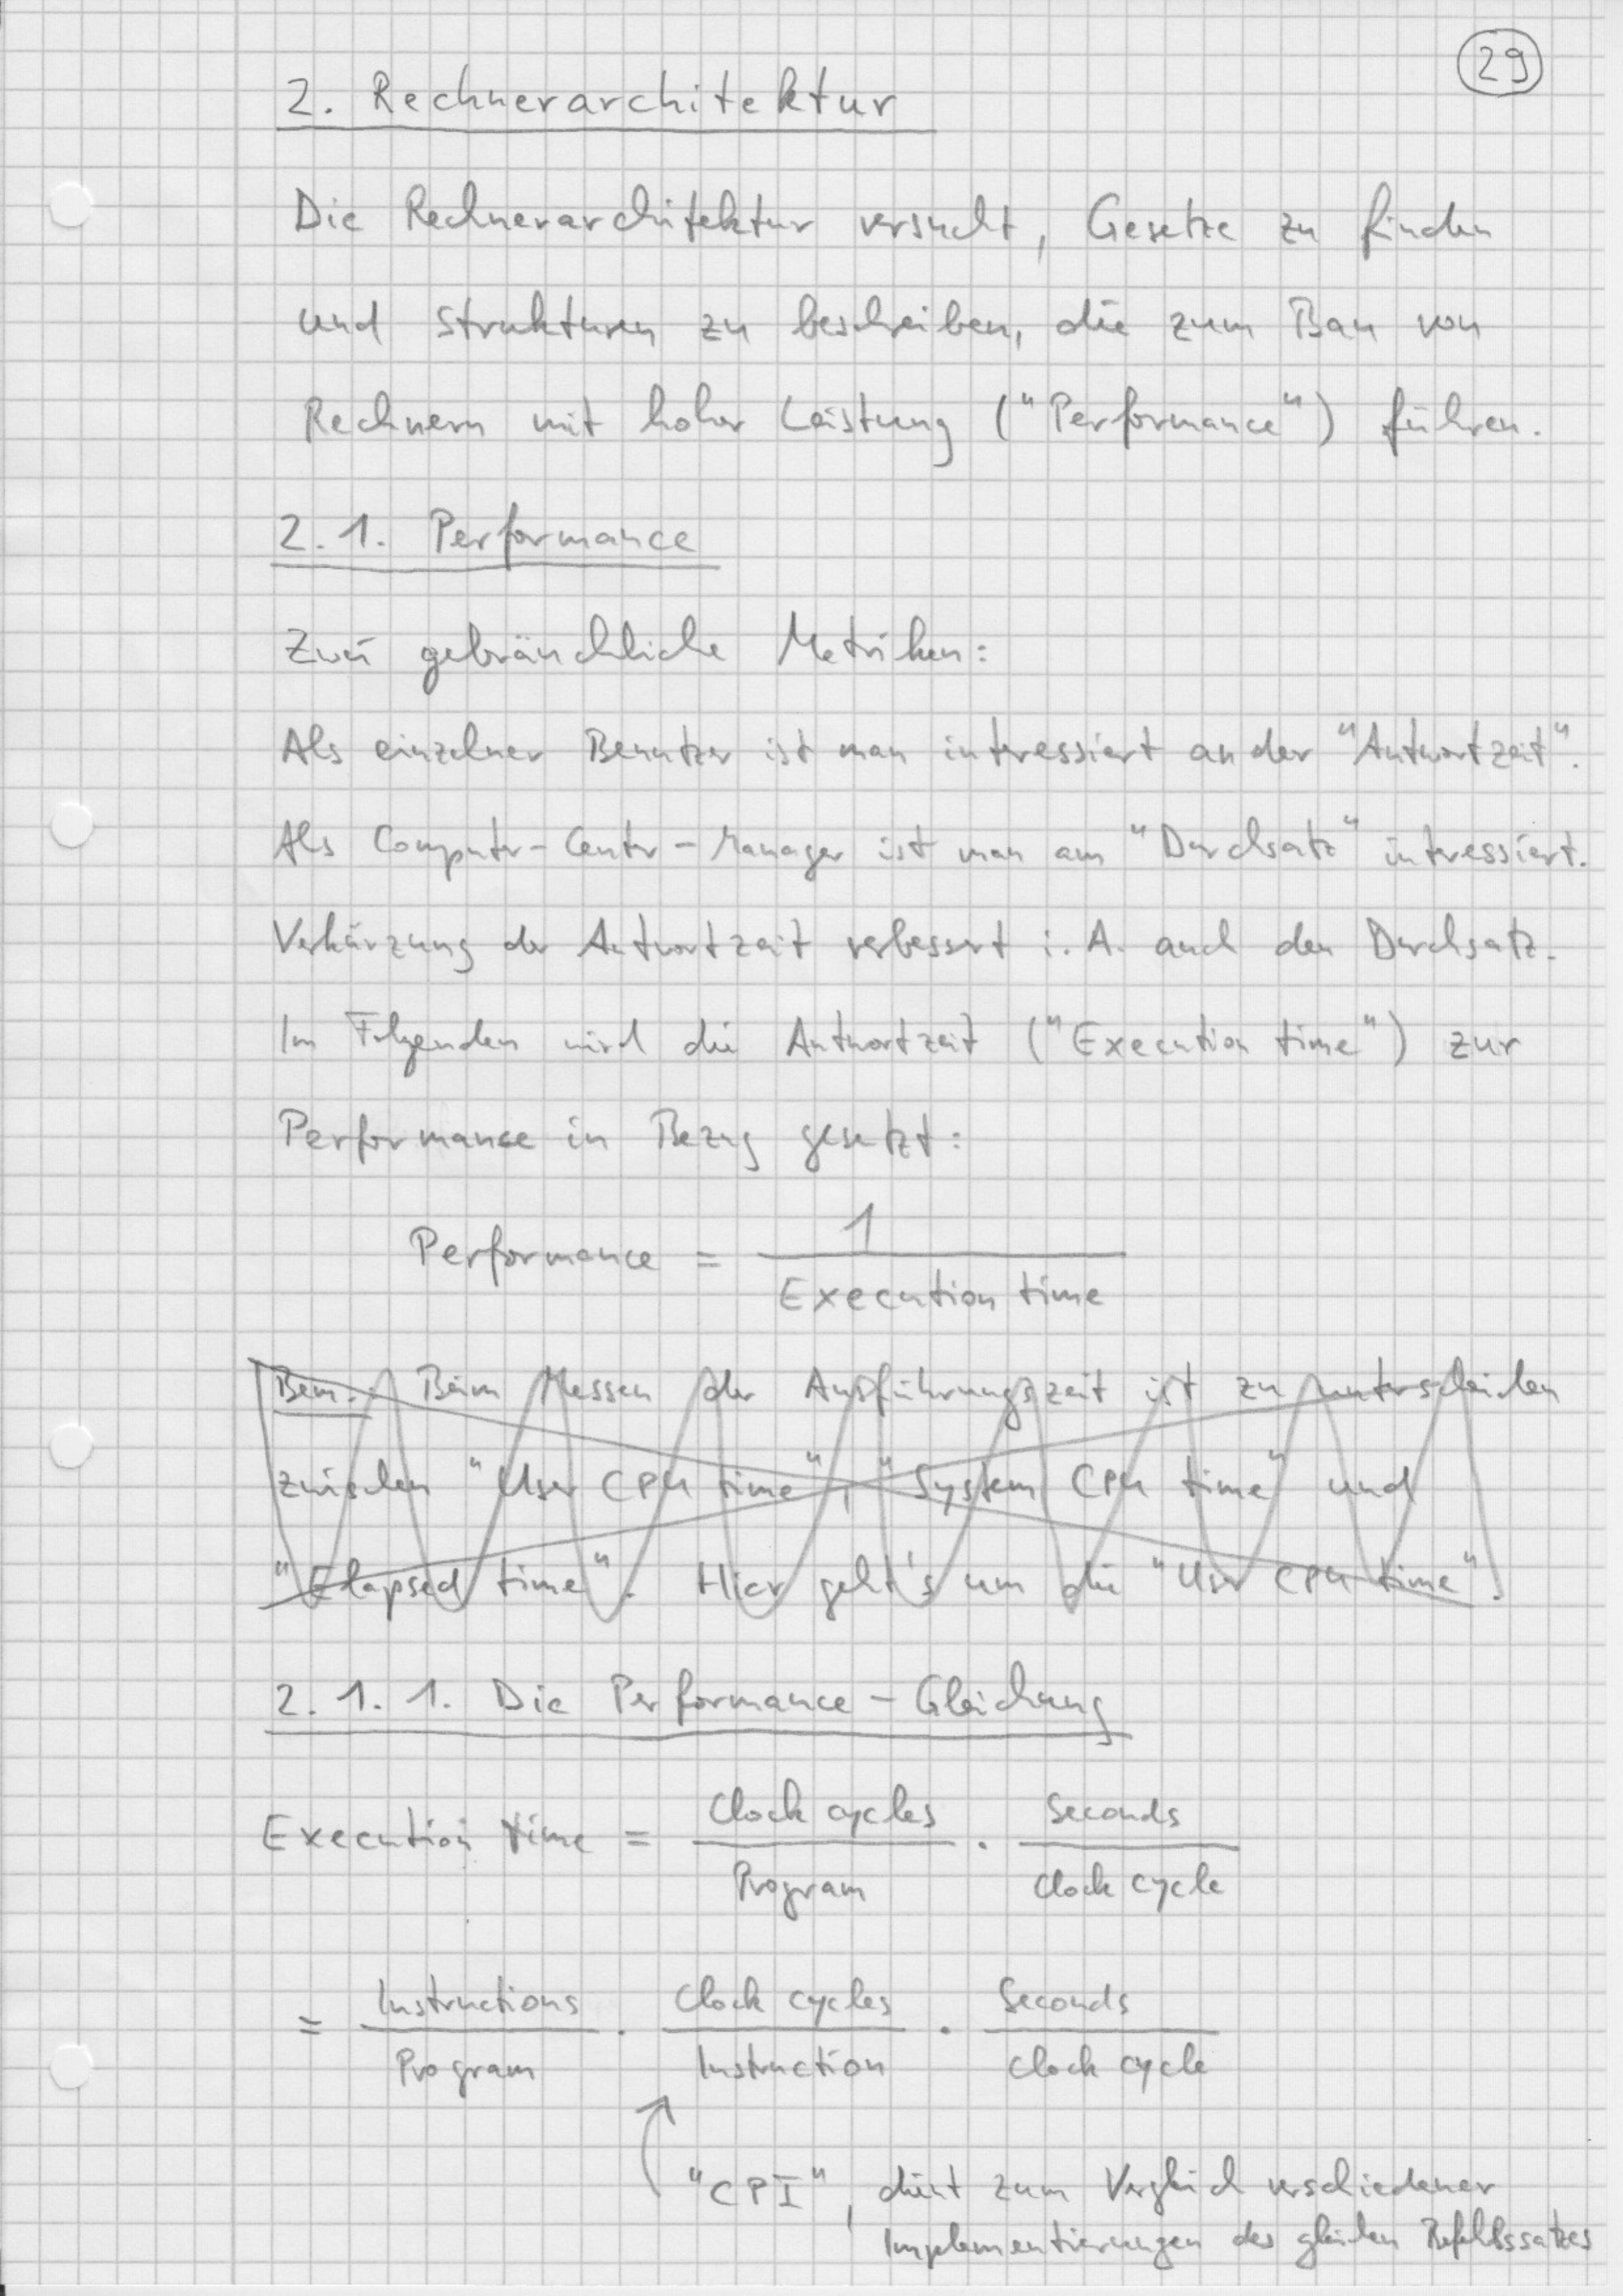 29
2. Rechnerarchitektur
Die Rechnerarchitektur versucht, Gesetze zu finden
und Strukturen zu beschreiben, die zum Bau von
Rechnern mit hoher Leistung ("Performance") führen.
2.1. Performance
Zwei gebräuchliche Metriken:
Als einzelner Benutzer ist man interessiert an der "Antwortzeit".
Als Computer-Center-Manager ist man am "Durchsatz" interessiert.
Verkürzung der Antwortzeit verbessert i. A. auch den Durchsatz.
Im Folgenden wird die Antwortzeit ("Execution time") zur
Performance in Bezug gesetzt:
Performance = 1 / Execution time
Bem.: Beim Messen der Ausführungszeit ist zu unterscheiden
zwischen "User CPU time", "System CPU time" und
"Elapsed time". Hier geht's um die "User CPU time".
2.1.1. Die Performance-Gleichung
Execution time = Clock cycles / Program · Seconds / Clock cycle
= Instructions / Program · Clock cycles / Instruction · Seconds / Clock cycle
"CPI", dient zum Vergleich verschiedener
Implementierungen des gleichen Befehlssatzes